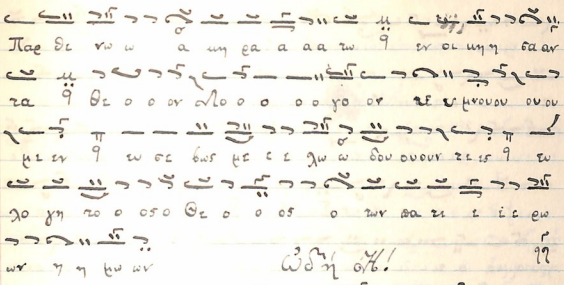 Παρ θε νω ω α κη ρα α α α τω ᾳ εν οι κη η σα αν
τα ᾳ θε ο ο ον λο ο ο ο ο γο ον τε υ μνουου ου ου
με εν ᾳ ευ σε βως με ε ε λω ω δου ουουν τε ες ᾳ ευ
λο γη το ο οσ ο Θε ο ο ος ο των πα τε ε ε ε ρω
ων η η μω ων